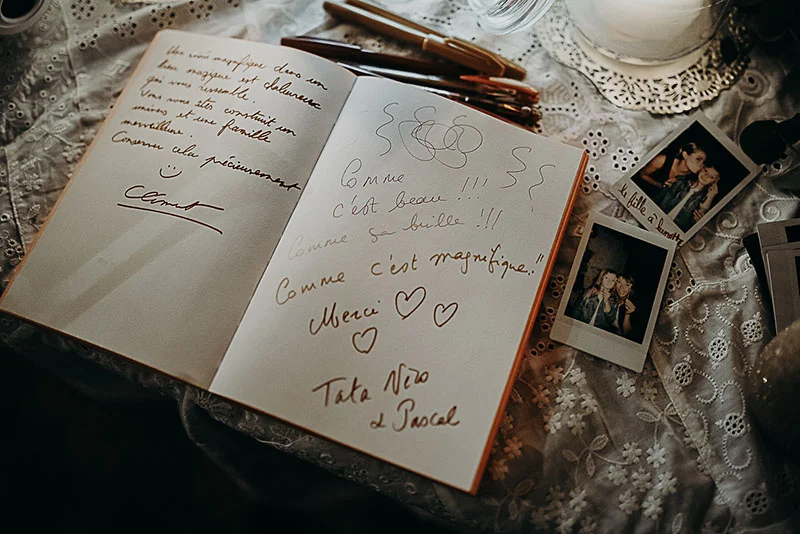 Un voeu magnifique dans un
lieu magique et chaleureux
qui vous ressemble.
Vous vous êtes construit un
univers et une famille
merveilleuse.
Conserver cela précieusement
Comme
c'est beau !!!
Comme ça brille !!!
Comme c'est magnifique!!
Merci
Tata Nico
& Pascal
la fille à lunette